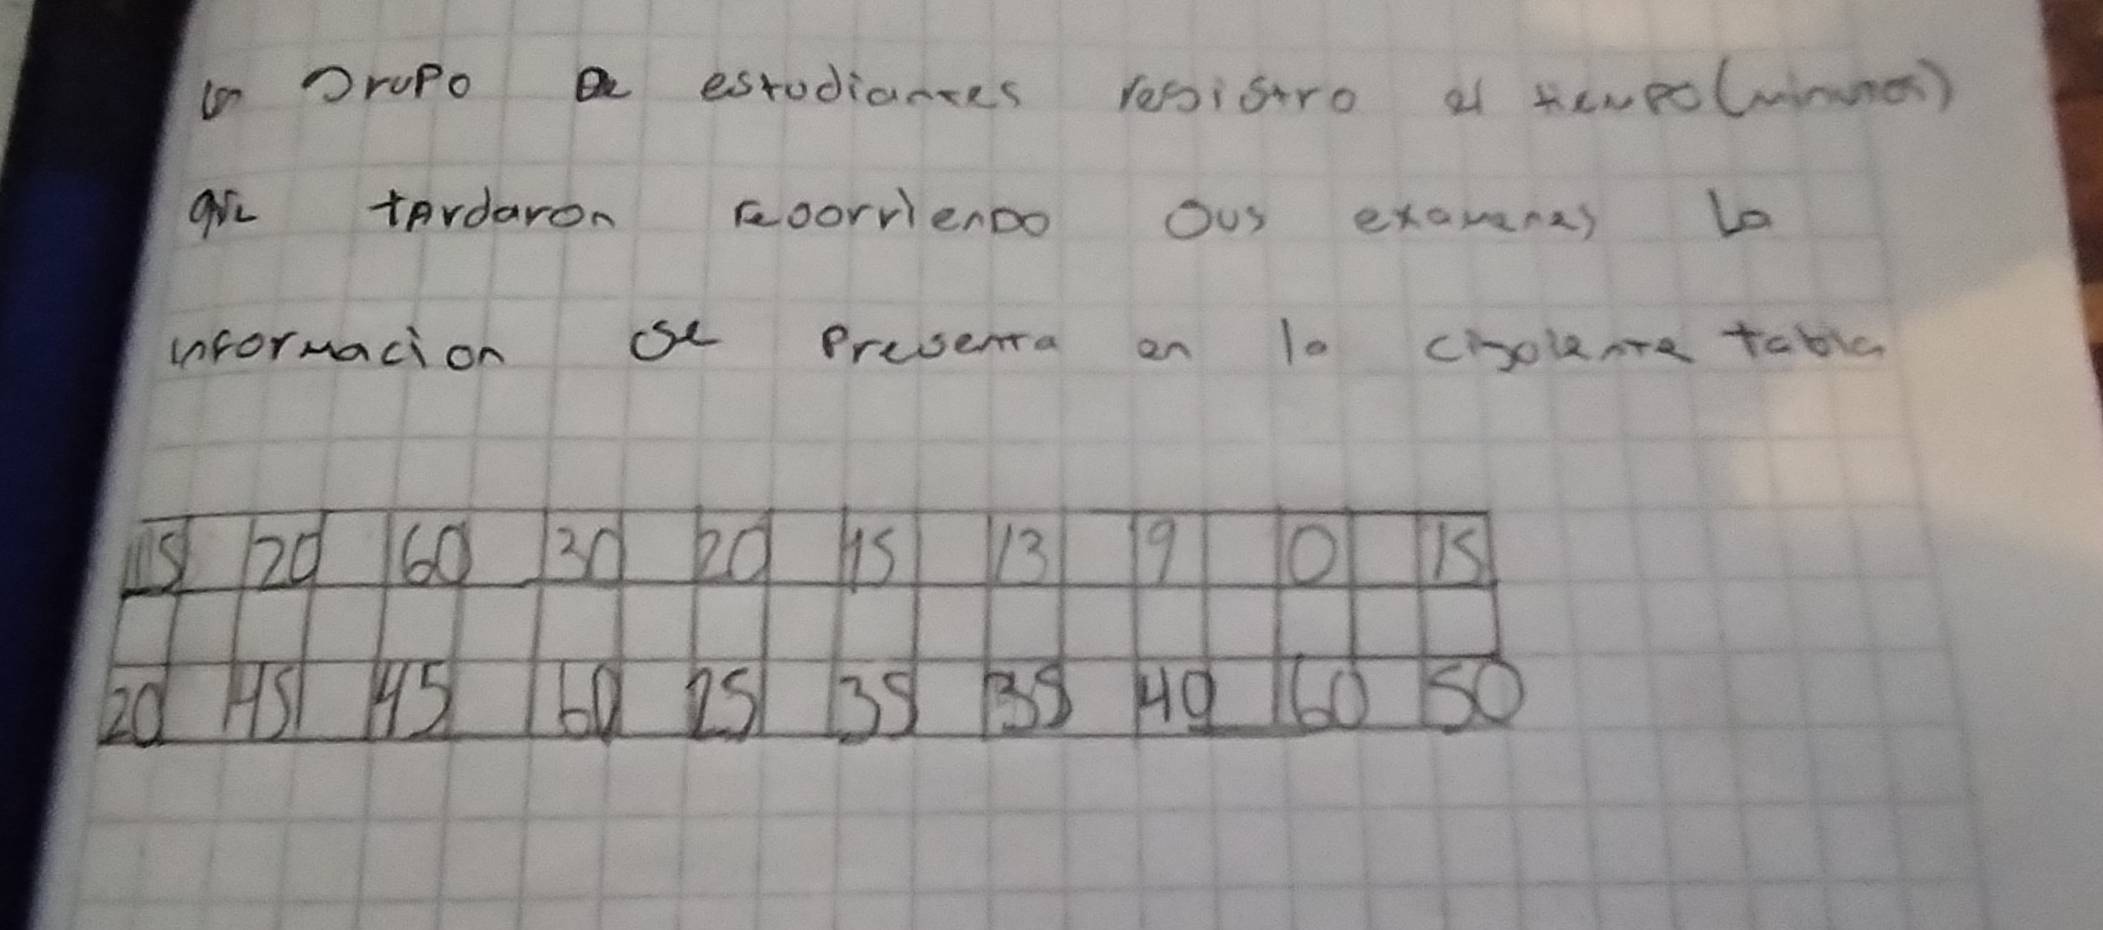 un Grupo De estudiantes registro el tiempo (minutos)
que tArdaron recorrienDo Sus examenes La
informacion se Presenta en la cigiente tabla
15 20 60 30 20 45 13 9 0 15
20 45 45 60 25 35 35 40 60 50